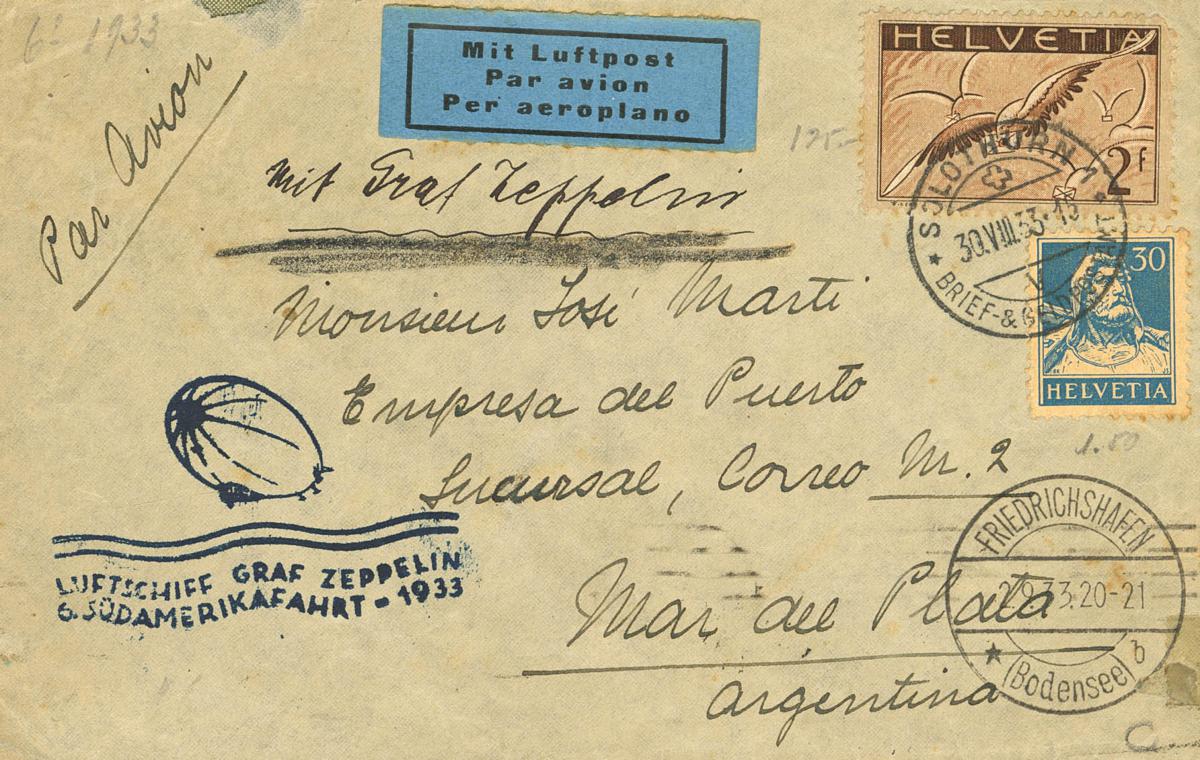 6ª 1933
Par Avion
Mit Luftpost
Par avion
Per aeroplano
HELVETIA
2F
195.-
Mit Graf Zeppelin
SOLOTHURN 1
30.VIII.33.-15
BRIEF-&
30
HELVETIA
1.50
Monsieur José Marti
Empresa del Puerto
Sucursal, Correo M. 2
Mar del Plata
Argentina
LUFTSCHIFF GRAF ZEPPELIN
6. SÜDAMERIKAFAHRT - 1933
FRIEDRICHSHAFEN
2.9.33.20-21
b
(Bodensee)